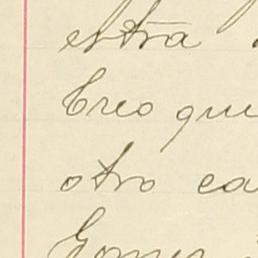 estra
Creo que
otro ca
Gomez